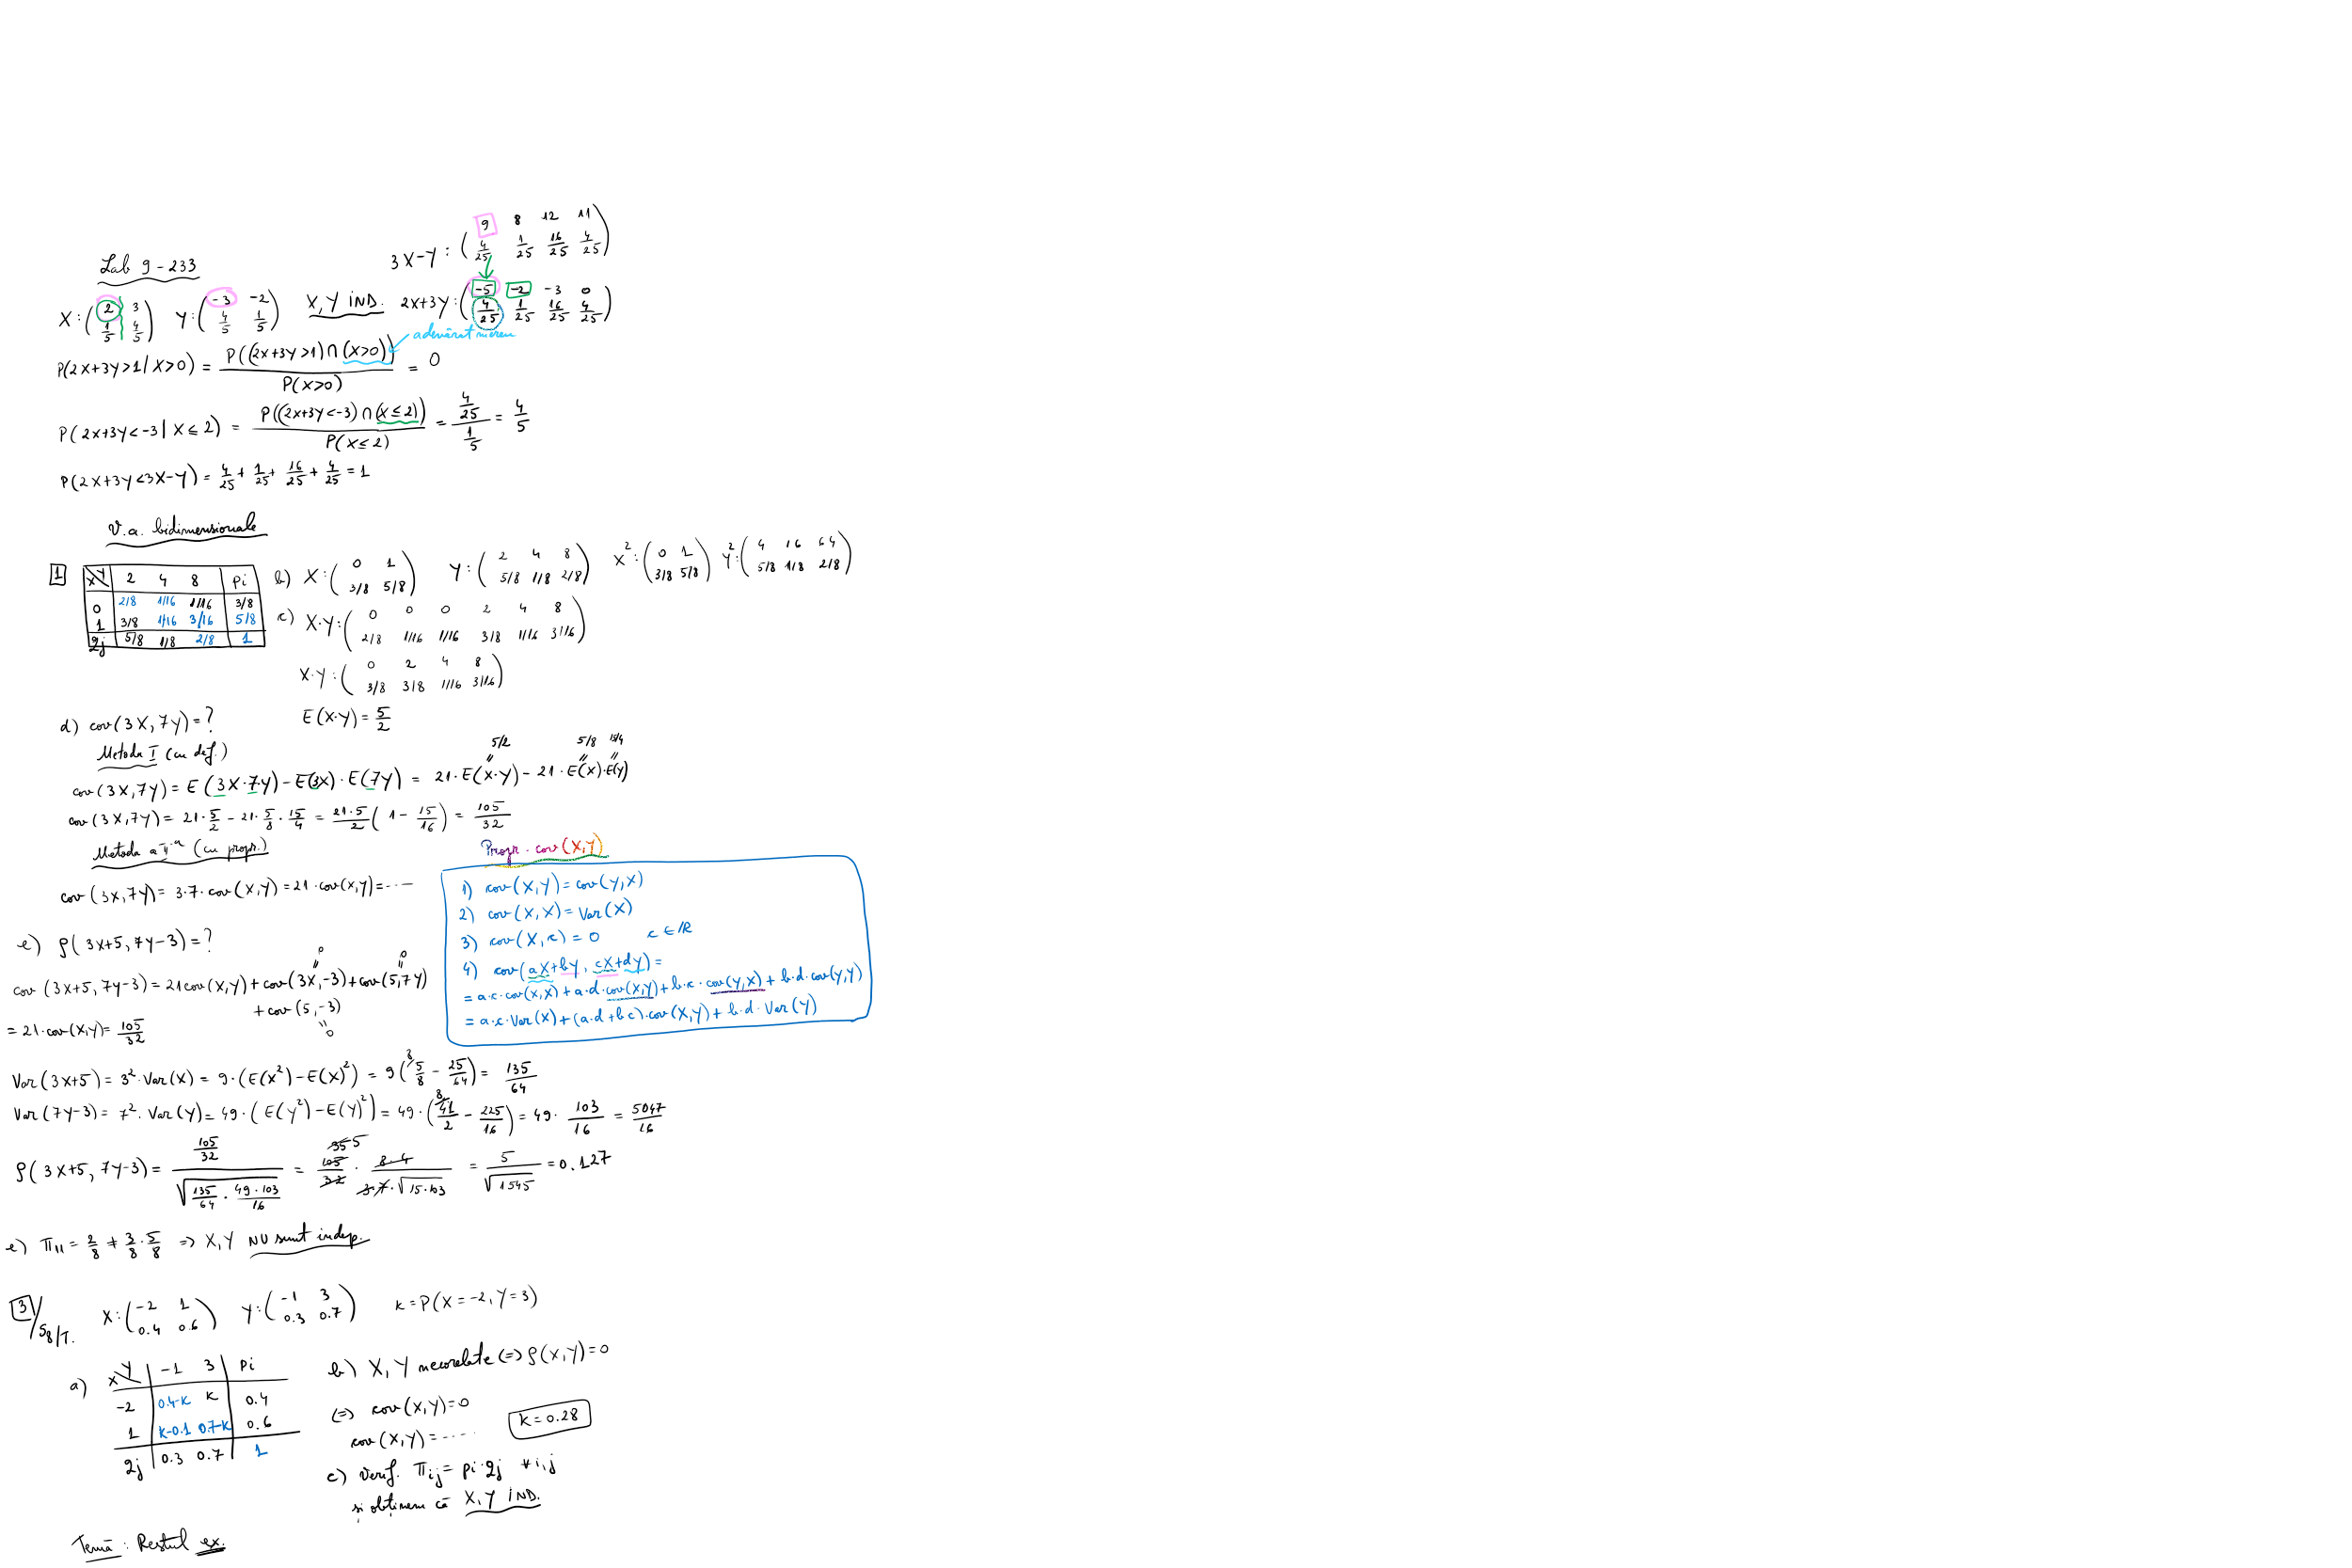 Lab 9 - 233
3X-Y : ( 9 8 12 11 )
( 4/25 1/25 16/25 4/25 )
X : ( 2 3 ) Y : ( -3 -2 ) X, Y IND. 2X+3Y : ( -5 -2 -3 0 )
( 1/5 4/5 ) ( 4/5 1/5 ) ( 4/25 1/25 16/25 4/25 )
adevărat mereu
P(2X+3Y>1 | X>0) = P((2X+3Y>1)∩(X>0)) / P(X>0) = 0
P(2X+3Y<-3 | X≤2) = P((2X+3Y<-3)∩(X≤2)) / P(X≤2) = (4/25) / (1/5) = 4/5
P(2X+3Y<3X-Y) = 4/25 + 1/25 + 16/25 + 4/25 = 1
V.a. bidimensionale
1
X\Y 2 4 8 pi
0 2/8 1/16 1/16 3/8
1 3/8 1/16 3/16 5/8
qj 5/8 1/8 2/8 1
b) X : ( 0 1 ) Y : ( 2 4 8 ) X² : ( 0 1 ) Y² : ( 4 16 64 )
( 3/8 5/8 ) ( 5/8 1/8 2/8 ) ( 3/8 5/8 ) ( 5/8 1/8 2/8 )
c) X·Y : ( 0 0 0 2 4 8 )
( 2/8 1/16 1/16 3/8 1/16 3/16 )
X·Y : ( 0 2 4 8 )
( 3/8 3/8 1/16 3/16 )
d) cov(3X, 7Y) = ? E(X·Y) = 5/2
Metoda I (cu def.)
5/2 5/8 15/4
cov(3X, 7Y) = E(3X·7Y) - E(3X)·E(7Y) = 21·E(X·Y) - 21·E(X)·E(Y)
cov(3X, 7Y) = 21·5/2 - 21·5/8·15/4 = 21·5/2 (1 - 15/16) = 105/32
Metoda a II-a (cu propr.)
cov(3X, 7Y) = 3·7·cov(X, Y) = 21·cov(X, Y) = ...
Propr. cov(X,Y)
1) cov(X, Y) = cov(Y, X)
2) cov(X, X) = Var(X)
3) cov(X, c) = 0 c ∈ ℝ
4) cov(aX+bY, cX+dY) =
= a·c·cov(X,X) + a·d·cov(X,Y) + b·c·cov(Y,X) + b·d·cov(Y,Y)
= a·c·Var(X) + (a·d+bc)·cov(X,Y) + b·d·Var(Y)
e) ρ(3X+5, 7Y-3) = ?
0 0
cov(3X+5, 7Y-3) = 21cov(X,Y) + cov(3X,-3) + cov(5,7Y)
+ cov(5,-3)
0
= 21·cov(X,Y) = 105/32
Var(3X+5) = 3²·Var(X) = 9·(E(X²)-E(X)²) = 9(⁸⁾5/8 - 25/64) = 135/64
Var(7Y-3) = 7²·Var(Y) = 49·(E(Y²)-E(Y)²) = 49·(⁸⁾41/2 - 225/16) = 49·103/16 = 5047/16
ρ(3X+5, 7Y-3) = (105/32) / √(135/64 · 49·103/16) = 35 5 105/32 · 8·4/(3·7·√15·103) = 5/√1545 = 0.127
e) π11 = 2/8 ≠ 3/8·5/8 => X, Y NU sunt indep.
3 /S8/T. X : ( -2 1 ) Y : ( -1 3 ) K = P(X=-2, Y=3)
( 0.4 0.6 ) ( 0.3 0.7 )
a) X\Y -1 3 pi
-2 0.4-K K 0.4
1 K-0.1 0.7-K 0.6
qj 0.3 0.7 1
b) X, Y necorelate (=> ρ(X,Y)=0
(=> cov(X,Y)=0
cov(X,Y)=.... K=0.28
c) Verif. πij = pi·qj ∀ i,j
și obținem că X, Y IND.
Temă : Restul ex.